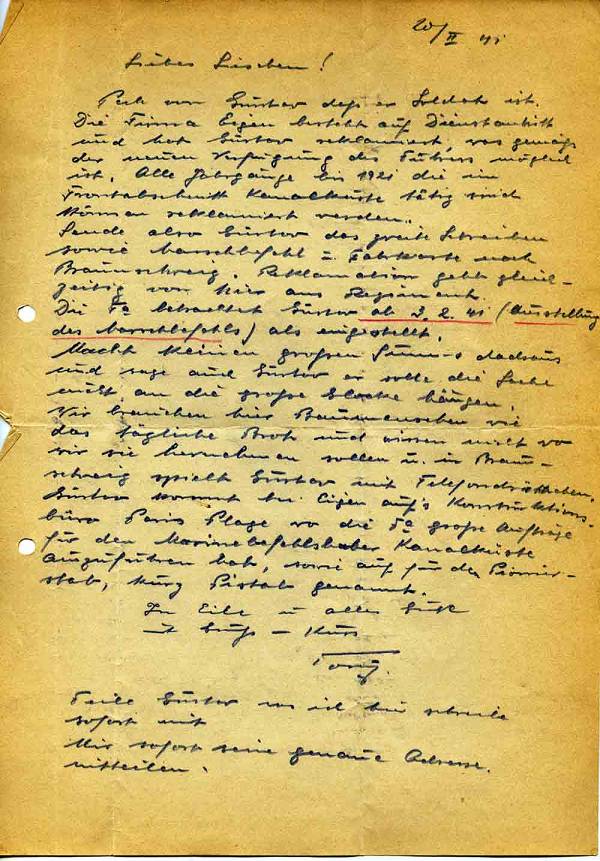 20/II 41
Liebes Lieschen!
Pech von Gustav dass er Soldat ist.
Die Firma Eigen besteht auf Dienstantritt
und hat Gustav reklamiert, was gemäss
der neuen Verfügung des Führers möglich
ist. Alle Jahrgänge bis 1921 die im
Frontabschnitt Kanalküste tätig sind
können reklamiert werden.
Sende also Gustav das zweite Schreiben
sowie Marschbefehl u. Fahrkarte nach
Braunschweig. Reklamation geht gleich-
zeitig von hier ans Regiment.
Die Fa betrachtet Gustav ab 3.2.41 (Ausstellung
des Marschbefehls) als eingestellt.
Macht keinen grossen daraus
und sage auch Gustav er solle die Sache
nicht an die große Glocke hängen.
Wir brauchen hier Baumenschen wie
das tägliche Brot und wissen nicht wo
wir sie hernehmen sollen u. in Braun-
schweig spielt Gustav mit Telefondrähtchen.
Gustav kommt bei Eigen auf's Konstruktions-
büro Paris Plage wo die Fa große Aufträge
für den Marinebefehlshaber Kanalküste
auszuführen hat, sowie auch für den Pionier-
stab, kurz genannt.
In Eile u alles Gute
Gruß – Kuss
Tony.
Teile Gustav was ich hier schreibe
sofort mit
Mir sofort seine genaue Adresse
mitteilen.